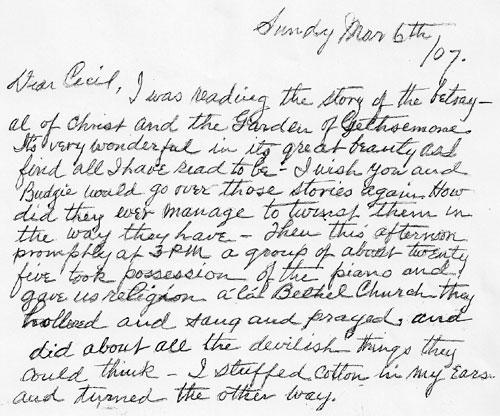 Sunday Mar 6th
/07.
Dear Cecil, I was reading the story of the betray-
al of Christ and the Garden of Gethsemone
Its very wonderful in its great beauty as I
find all I have read to be - I wish you and
Budgie would go over those stories again. How
did they ever manage to twinst them in
the way they have - Then this afternoon
promptly at 3 PM a group of about twenty
five took possession of the piano and
gave us religion á la Bethel Church they
hollered and sang and prayed, and
did about all the devilish things they
could think - I stuffed cotton in my ears
and turned the other way.